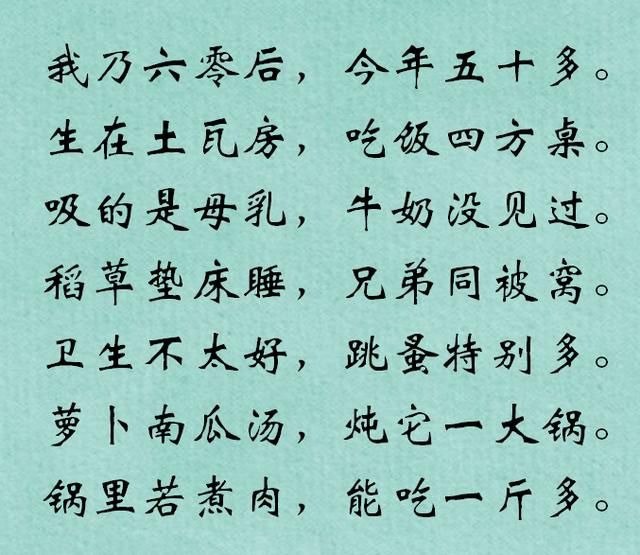 我乃六零后，今年五十多。
生在土瓦房，吃饭四方桌。
吸的是母乳，牛奶没见过。
稻草垫床睡，兄弟同被窝。
卫生不太好，跳蚤特别多。
萝卜南瓜汤，炖它一大锅。
锅里若煮肉，能吃一斤多。